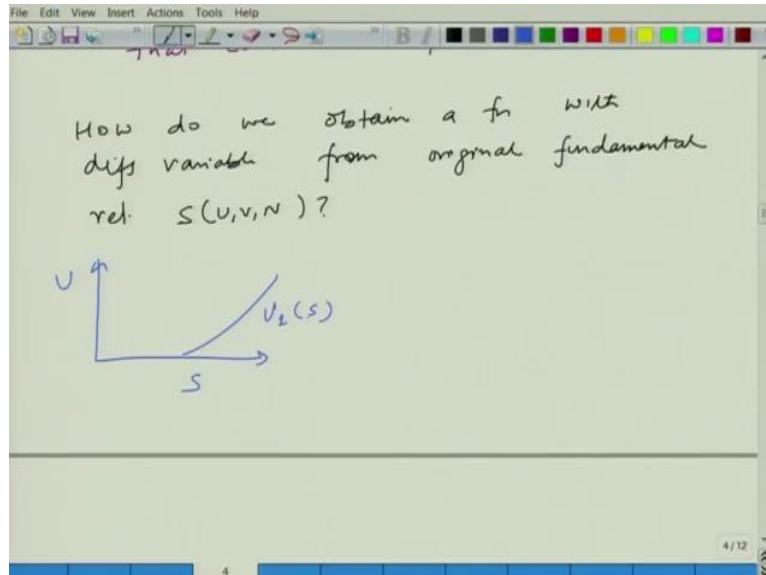 File Edit View Insert Actions Tools Help
B I
that
How do we obtain a fn with
diff variable from original fundamental
rel. S(U,V,N)?
U
U1(S)
S
4/12
4